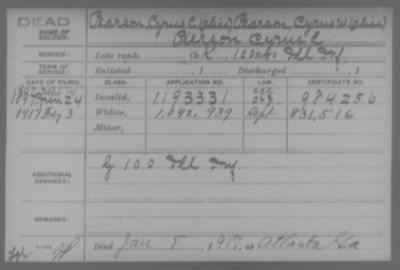 DEAD
NAME OF SOLDIER:
Pearson, Cyrus C (alias) Pearson, Cyrus W (alias)
Pierson Cyrus C
SERVICE:
Late rank, Co. K, 100 Ill Inf
TERM OF SERVICE:
Enlisted , 1 Discharged , 1
DATE OF FILING. CLASS. APPLICATION NO. LAW. CERTIFICATE NO.
Jan 24 Invalid, 1193331 984256
1917 Feby 3 Widow, 1,092,939 Sept 831,516
Minor,
ADDITIONAL SERVICES:
G 100 Ill Inf
REMARKS:
Died Jan 5, 1917, at Atlanta Ga